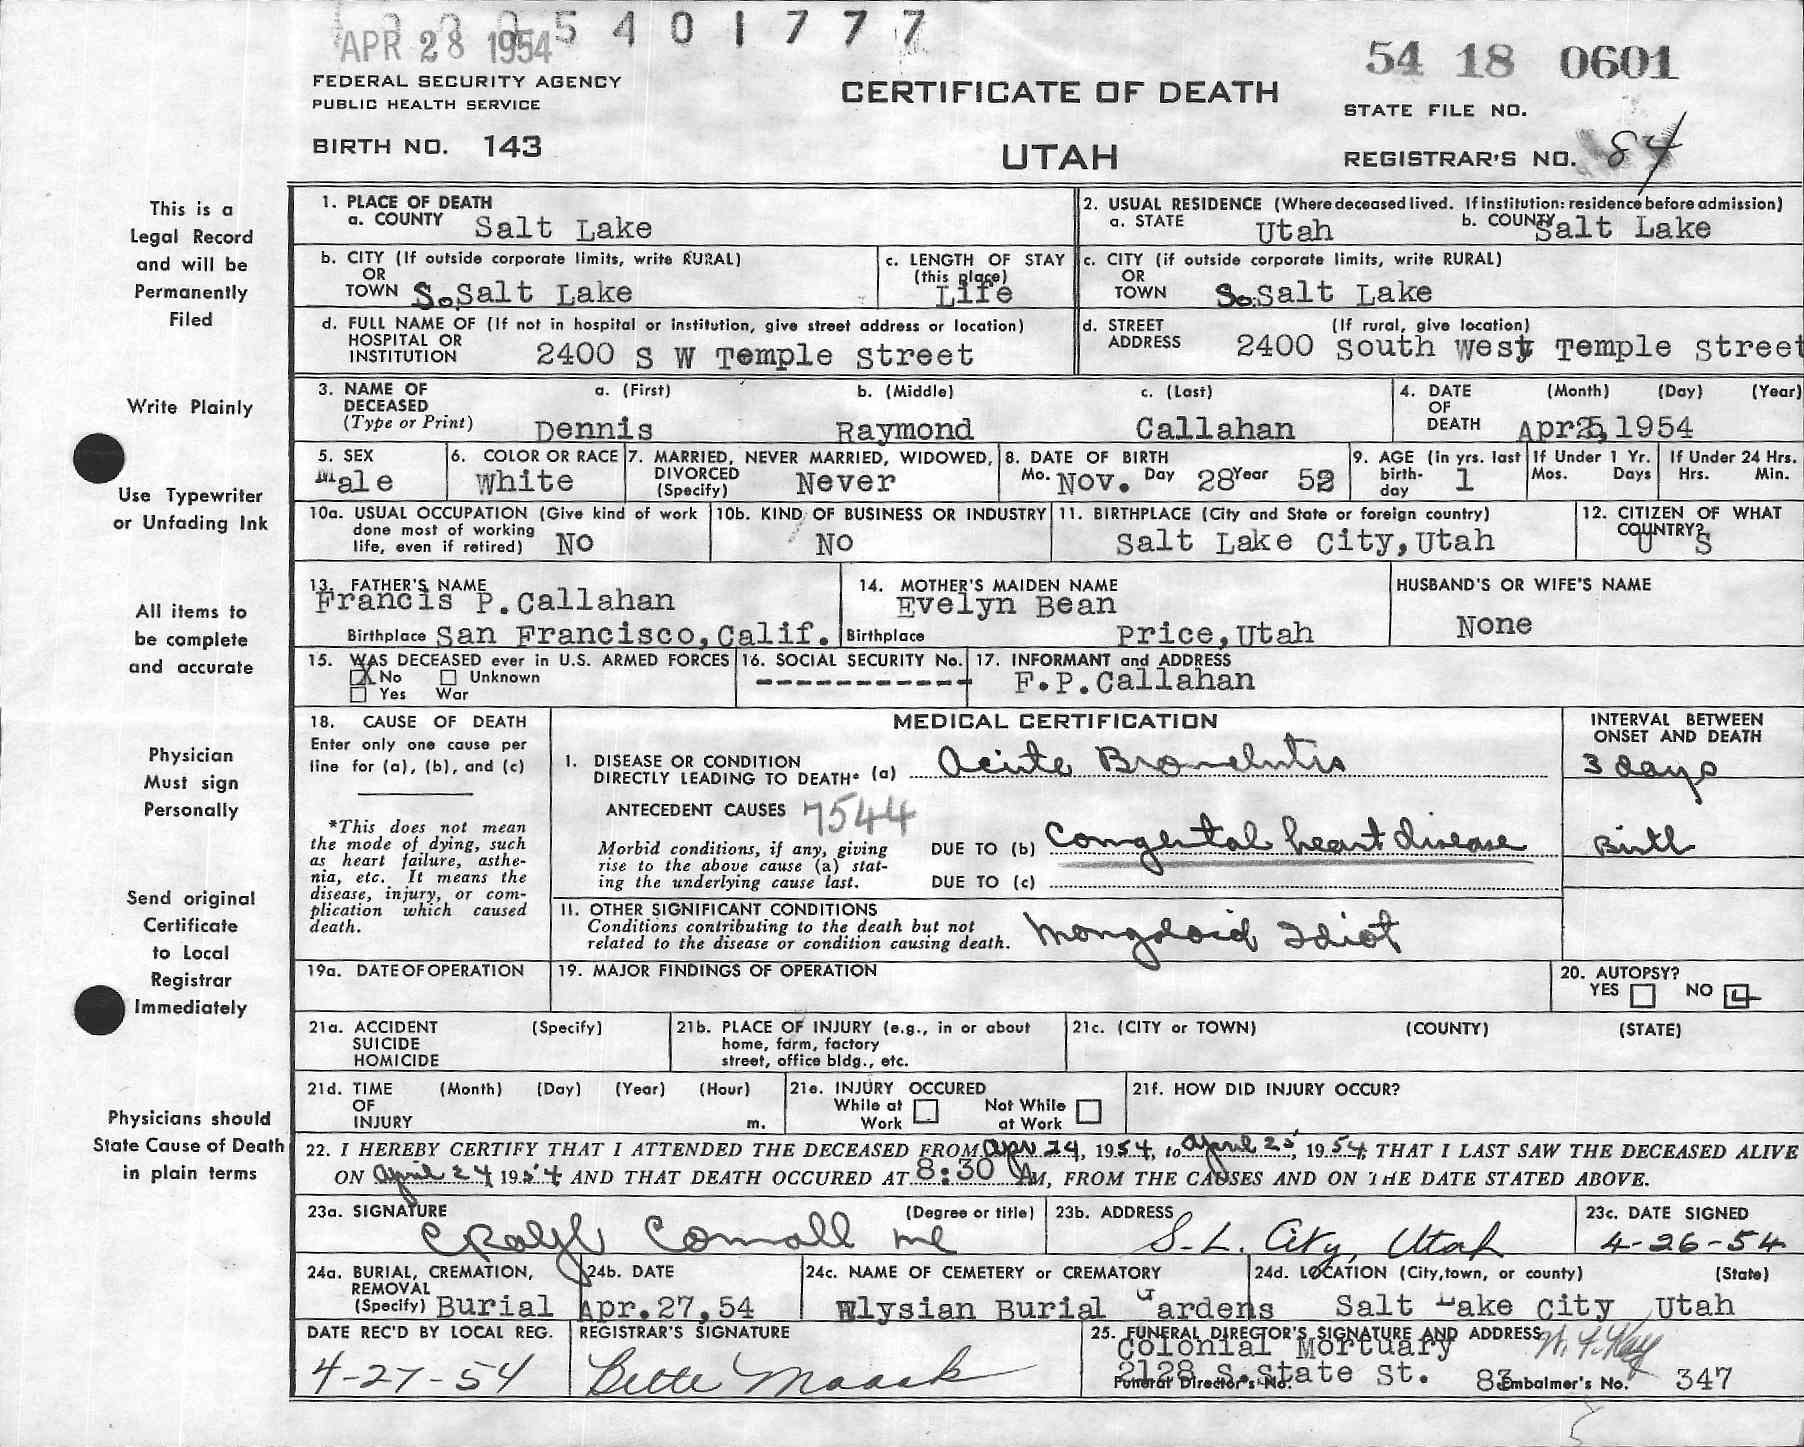 5 4 0 1 7 7 7
APR 28 1954
54 18 0601
FEDERAL SECURITY AGENCY
PUBLIC HEALTH SERVICE
CERTIFICATE OF DEATH
STATE FILE NO.
BIRTH NO. 143
UTAH
REGISTRAR'S NO. 84
This is a
Legal Record
and will be
Permanently
Filed
Write Plainly
Use Typewriter
or Unfading Ink
All items to
be complete
and accurate
Physician
Must sign
Personally
Send original
Certificate
to Local
Registrar
Immediately
Physicians should
State Cause of Death
in plain terms
1. PLACE OF DEATH
a. COUNTY Salt Lake
2. USUAL RESIDENCE (Where deceased lived. If institution: residence before admission)
a. STATE Utah b. COUNTY Salt Lake
b. CITY (If outside corporate limits, write RURAL)
OR
TOWN So.Salt Lake
c. LENGTH OF STAY
(this place)
Life
c. CITY (if outside corporate limits, write RURAL)
OR
TOWN So.Salt Lake
d. FULL NAME OF (If not in hospital or institution, give street address or location)
HOSPITAL OR
INSTITUTION 2400 S W Temple Street
d. STREET (If rural, give location)
ADDRESS 2400 South West Temple Street
3. NAME OF a. (First) b. (Middle) c. (Last)
DECEASED
(Type or Print) Dennis Raymond Callahan
4. DATE (Month) (Day) (Year)
OF
DEATH Apr 25, 1954
5. SEX
Male
6. COLOR OR RACE
White
7. MARRIED, NEVER MARRIED, WIDOWED,
DIVORCED
(Specify) Never
8. DATE OF BIRTH
Mo. Nov. Day 28 Year 52
9. AGE (in yrs. last
birth-
day 1
If Under 1 Yr.
Mos. Days
If Under 24 Hrs.
Hrs. Min.
10a. USUAL OCCUPATION (Give kind of work
done most of working
life, even if retired) No
10b. KIND OF BUSINESS OR INDUSTRY
No
11. BIRTHPLACE (City and State or foreign country)
Salt Lake City, Utah
12. CITIZEN OF WHAT
COUNTRY?
U S
13. FATHER'S NAME
Francis P. Callahan
Birthplace San Francisco, Calif.
14. MOTHER'S MAIDEN NAME
Evelyn Bean
Birthplace Price, Utah
HUSBAND'S OR WIFE'S NAME
None
15. WAS DECEASED ever in U.S. ARMED FORCES
X No Unknown
Yes War
16. SOCIAL SECURITY No.
------------
17. INFORMANT and ADDRESS
F.P.Callahan
18. CAUSE OF DEATH
Enter only one cause per
line for (a), (b), and (c)
*This does not mean
the mode of dying, such
as heart failure, asthe-
nia, etc. It means the
disease, injury, or com-
plication which caused
death.
MEDICAL CERTIFICATION
INTERVAL BETWEEN
ONSET AND DEATH
1. DISEASE OR CONDITION
DIRECTLY LEADING TO DEATH* (a) Acute Bronchitis 3 days
ANTECEDENT CAUSES 7544
Morbid conditions, if any, giving
rise to the above cause (a) stat-
ing the underlying cause last.
DUE TO (b) Congental heart disease Birth
DUE TO (c)
11. OTHER SIGNIFICANT CONDITIONS
Conditions contributing to the death but not
related to the disease or condition causing death.
Mongoloid Idiot
19a. DATE OF OPERATION
19. MAJOR FINDINGS OF OPERATION
20. AUTOPSY?
YES NO
21a. ACCIDENT (Specify)
SUICIDE
HOMICIDE
21b. PLACE OF INJURY (e.g., in or about
home, farm, factory
street, office bldg., etc.
21c. (CITY or TOWN) (COUNTY) (STATE)
21d. TIME (Month) (Day) (Year) (Hour)
OF
INJURY m.
21e. INJURY OCCURED
While at Work Not While at Work
21f. HOW DID INJURY OCCUR?
22. I HEREBY CERTIFY THAT I ATTENDED THE DECEASED FROM Apr 24, 1954, to April 25, 1954, THAT I LAST SAW THE DECEASED ALIVE
ON April 24 1954 AND THAT DEATH OCCURED AT 8:30 AM, FROM THE CAUSES AND ON THE DATE STATED ABOVE.
23a. SIGNATURE (Degree or title)
23b. ADDRESS
S.L. City, Utah
23c. DATE SIGNED
4-26-54
24a. BURIAL, CREMATION,
REMOVAL
(Specify) Burial
24b. DATE
Apr.27,54
24c. NAME OF CEMETERY or CREMATORY
Elysian Burial Gardens
24d. LOCATION (City,town, or county) (State)
Salt Lake City Utah
DATE REC'D BY LOCAL REG.
4-27-54
REGISTRAR'S SIGNATURE
Bette Maack
25. FUNERAL DIRECTOR'S SIGNATURE AND ADDRESS
Colonial Mortuary
2128 S. State St.
Funeral Director's No. 83 Embalmer's No. 347